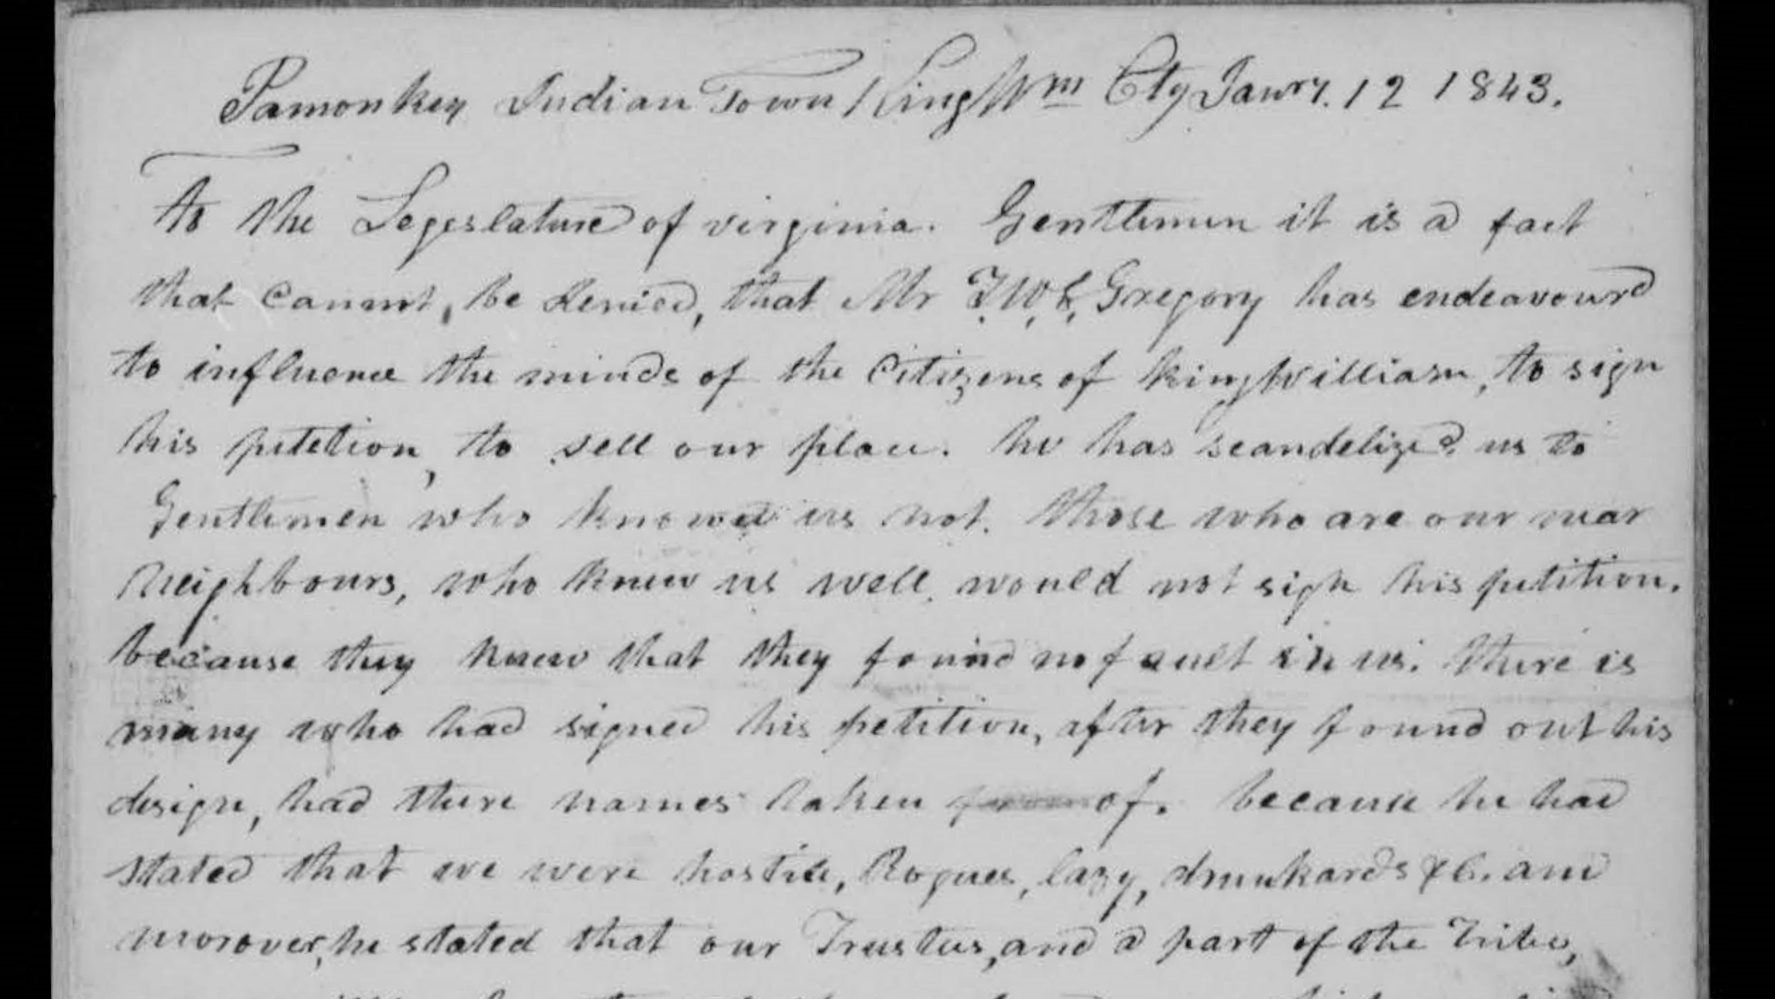 Pamonkey Indian Town King Wm Cty Janry. 12 1843.
to the Legeslature of virginia. Gentlemen it is a fact
that cannot, be denied, that Mr T.W.S. Gregory has endeavourd
to influence the minds of the Citizens of King William, to sign
his petetion, to sell our place. he has scandelized us to
Gentlemen who knowed us not. those who are our near
Neighbours, who knew us well, would not sign his petition.
because they knew that they found no fault in us. there is
many who had signed his petition, after they found out his
design, had there names taken of. because he had
stated that we were hostile, Rogues, lazy, drunkards &C. and
morover, he stated that our Trustees, and a part of the Tribe,